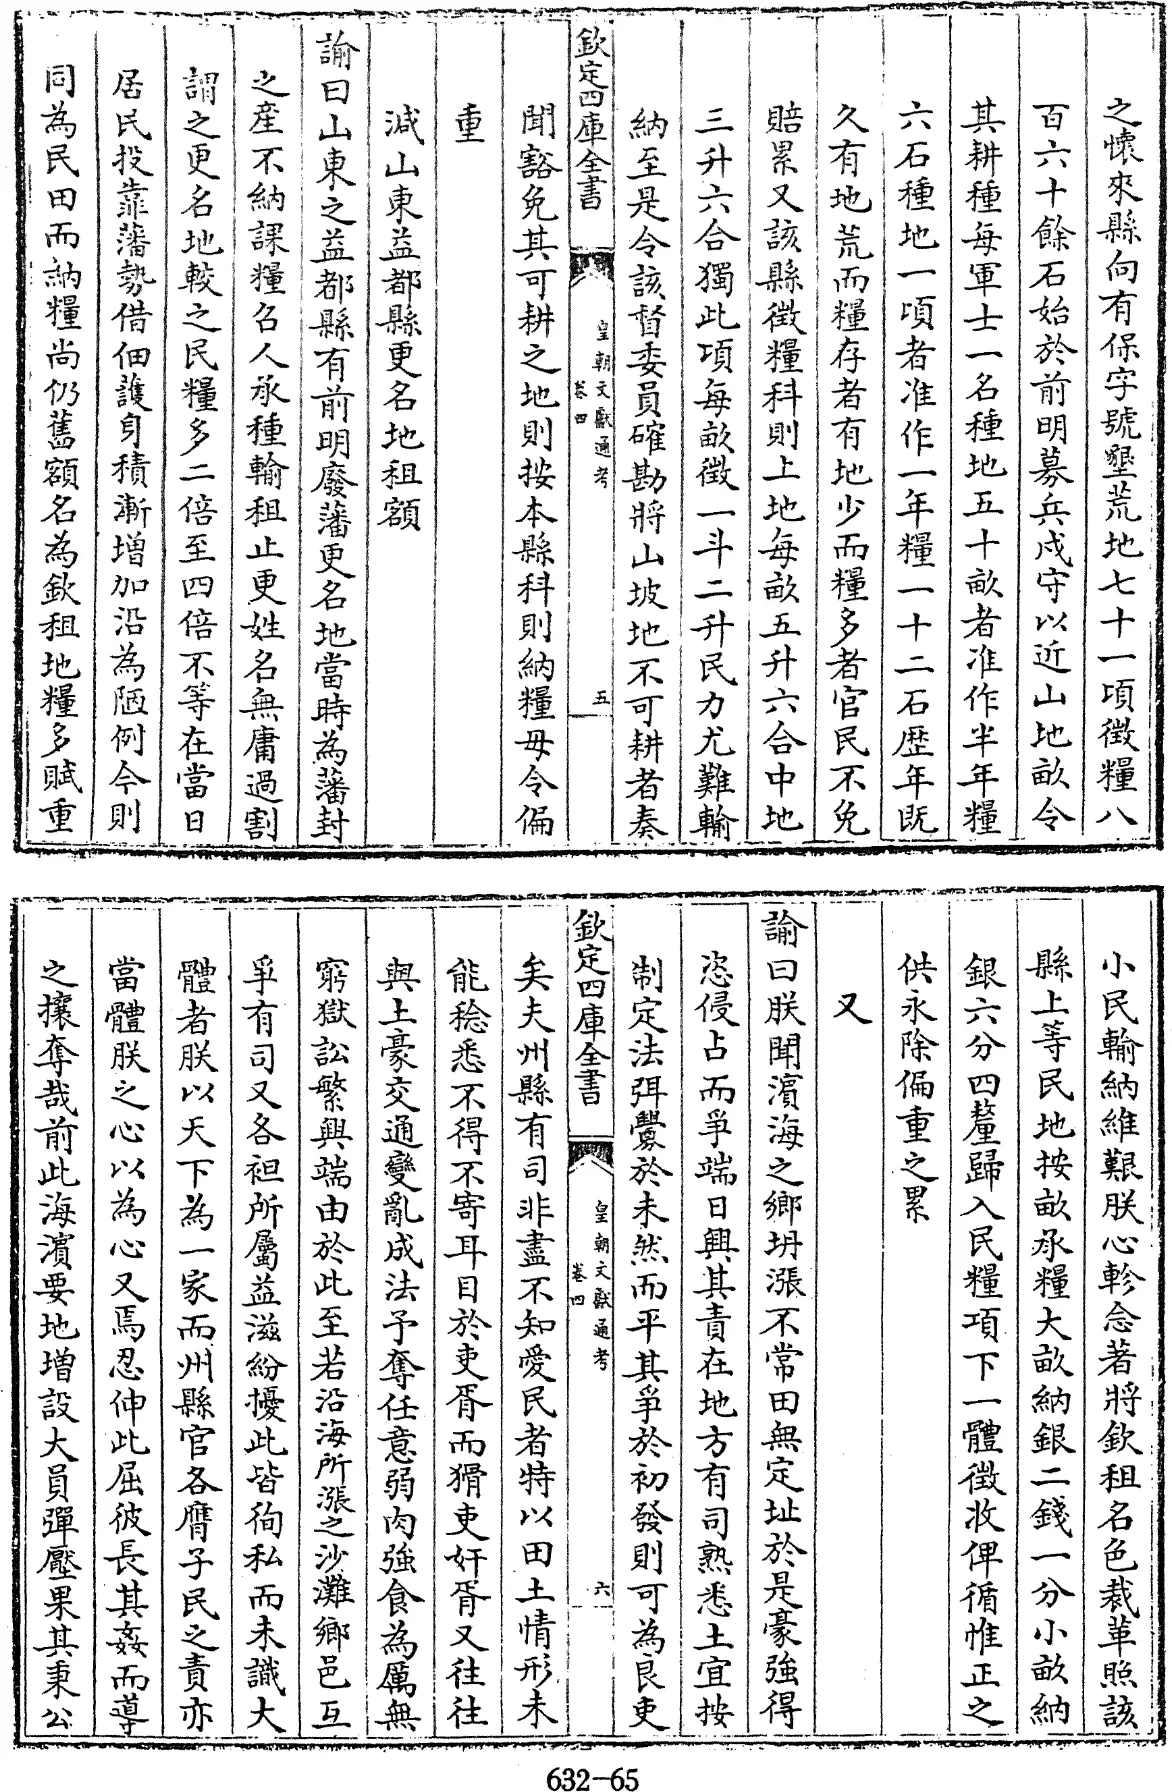 之懷來縣向有保字號墾荒地七十一頃徴糧八
百六十餘石始於前明募兵戍守以近山地畝令
其耕種每軍士一名種地五十畝者准作半年糧
六石種地一頃者准作一年糧一十二石歴年既
久有地荒而糧存者有地少而糧多者官民不免
賠累又該縣徴糧科則上地每畝五升六合中地
三升六合獨此項每畝徴一斗二升民力尤難輸
納至是令該督委員確勘將山坡地不可耕者奏
欽定四庫全書
皇朝文獻通考
卷四
五
聞豁免其可耕之地則按本縣科則納糧毋令偏
重
減山東益都縣更名地租額
諭曰山東之益都縣有前明廢藩更名地當時為藩封
之産不納課糧召人承種輸租止更姓名無庸過割
謂之更名地較之民糧多二倍至四倍不等在當日
居民投靠藩勢借佃護身積漸增加沿為陋例今則
同為民田而納糧尚仍舊額名為欽租地糧多賦重
小民輸納維艱朕心軫念著將欽租名色裁革照該
縣上等民地按畝承糧大畝納銀二錢一分小畝納
銀六分四釐歸入民糧項下一體徴收俾循惟正之
供永除偏重之累
又
諭曰朕聞濵海之鄉坍漲不常田無定址於是豪強得
恣侵占而爭端日興其責在地方有司熟悉土宜按
制定法弭釁於未然而平其爭於初發則可為良吏
欽定四庫全書
皇朝文獻通考
卷四
六
矣夫州縣有司非盡不知愛民者特以田土情形未
能稔悉不得不寄耳目於吏胥而猾吏奸胥又往往
與土豪交通變亂成法予奪任意弱肉強食為厲無
窮獄訟繁興端由於此至若沿海所漲之沙灘鄉邑互
爭有司又各袒所屬益滋紛擾此皆徇私而未識大
體者朕以天下為一家而州縣官各膺子民之責亦
當體朕之心以為心又焉忍伸此屈彼長其姦而導
之攘奪哉前此海濵要地增設大員彈壓果其秉公
632-65